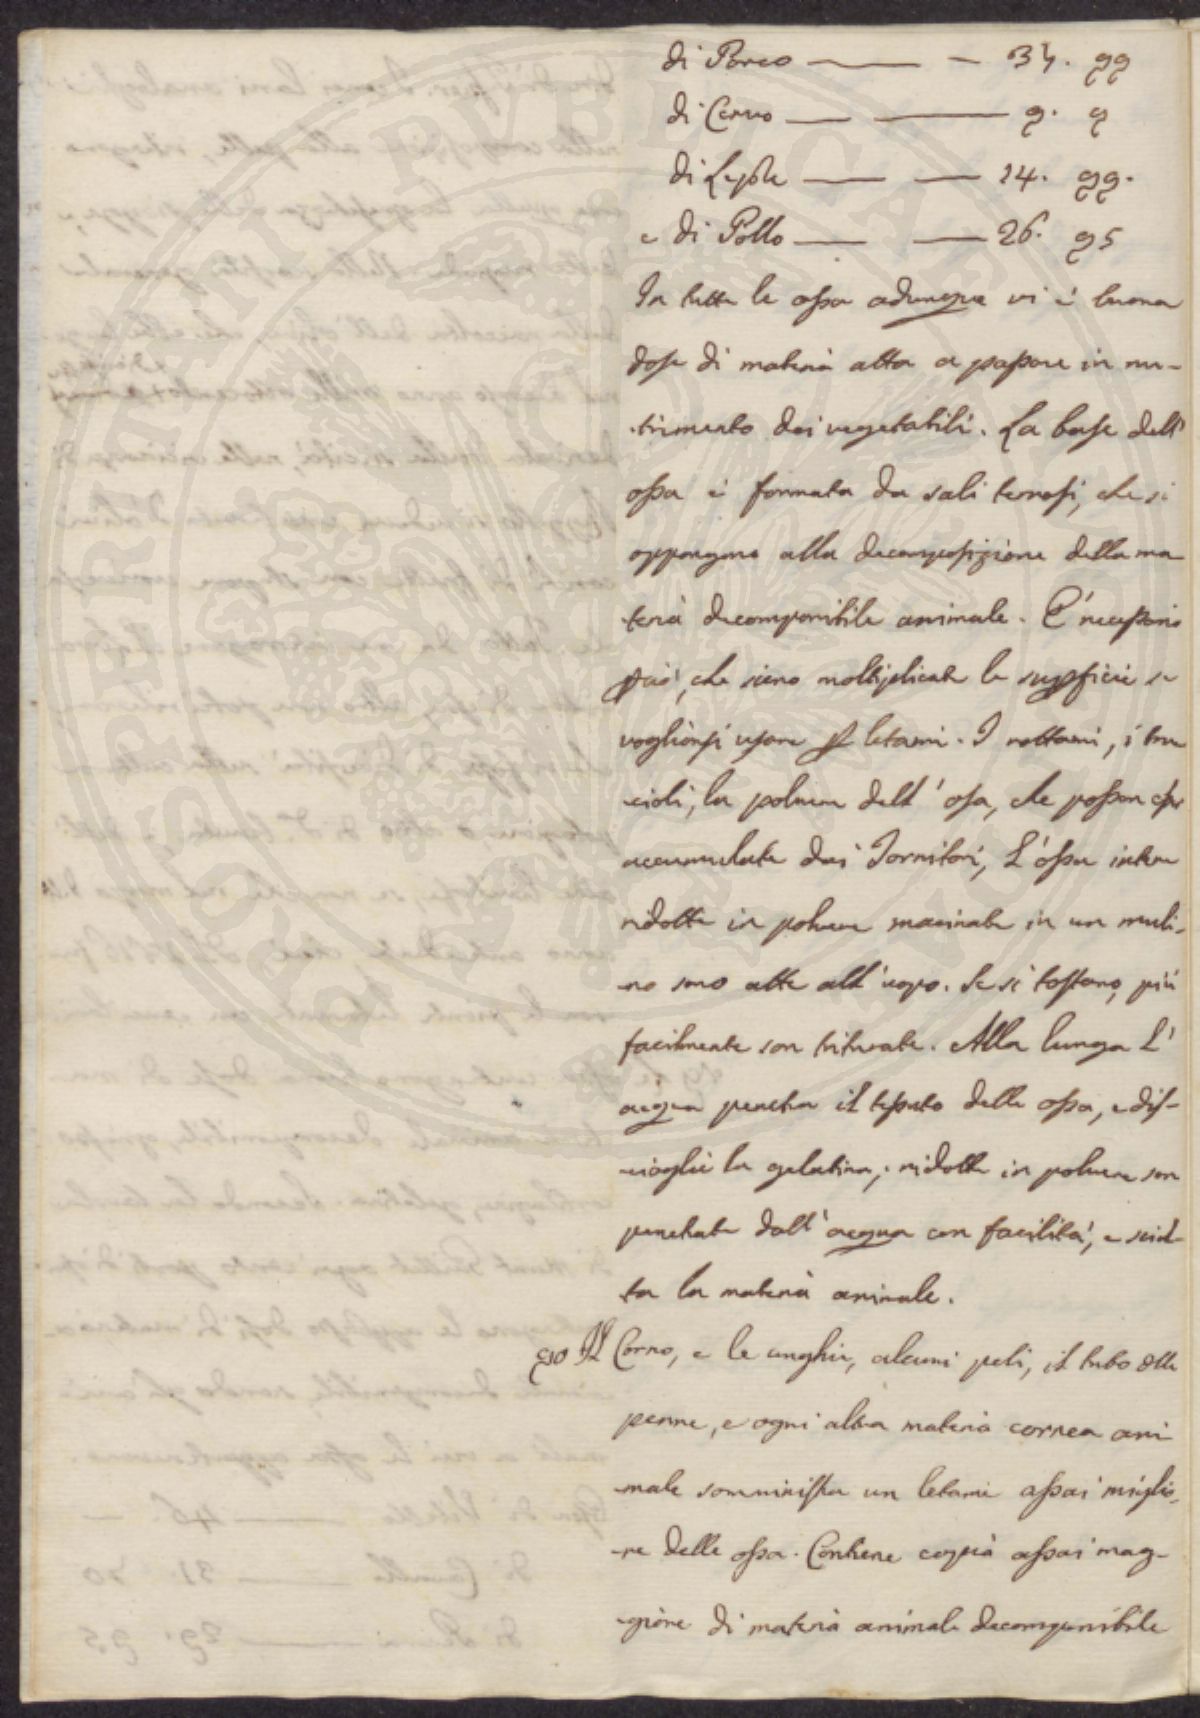 di Porco — — 34. 99
di Cervo — — 9. 9
di Lepre — — 14. 99.
e di Pollo — — 26. 95
In tutte le ossa adunque vi è buona
dose di materia atta a passare in nu-
-trimento dei vegetabili. La base dell'
ossa è formata da sali terrosi, che si
oppongono alla decomposizione della ma
-teria decomponibile animale. È necessario
p ciò, che sieno moltiplicate le supficie se
voglionsi usare p letami. I rottami, i tru
-cioli, la polvere dell' ossa, che posson esse
accumulate dai Tornitori, L'ossa intere
ridotte in polvere macinate in un muli-
-no sono atte all'uopo. Se si tostano, più
facilmente son triturate. Alla lunga L'
acqua penetra il tessuto delle ossa, e dis-
-cioglie la gelatina; ridotte in polvere son
penetrate dall'acqua con facilità, e sciol-
ta la materia animale.
90 Il Corno, e le unghie, alcuni peli, il tubo delle
penne, e ogni altra materia cornea ani
-male somministra un letame assai miglio-
-re delle ossa. Contiene copia assai mag-
-giore di materia animale decomponibile